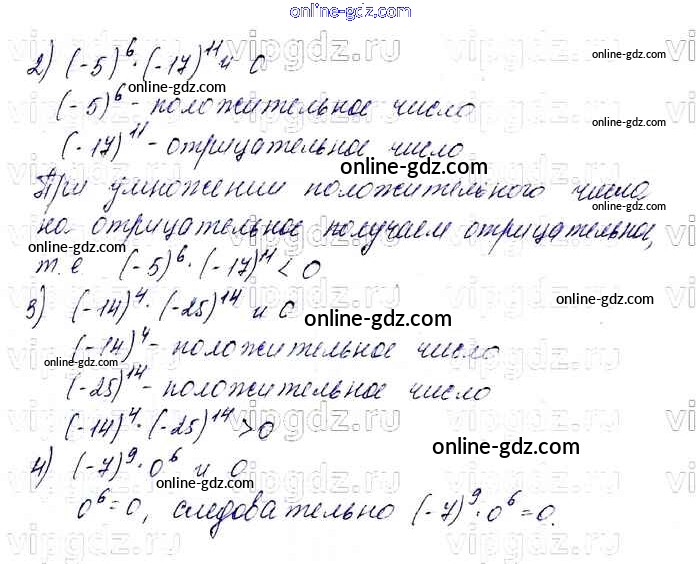 online-gdz.com
2) (-5)⁶·(-17)¹¹ и 0
online-gdz.com
(-5)⁶ - положительное число
online-gdz.com
(-17)¹¹ - отрицательное число
online-gdz.com
При умножении положительного числа
online-gdz.com
на отрицательное получаем отрицательное,
online-gdz.com
т.е (-5)⁶·(-17)¹¹ < 0
3) (-14)⁴·(-25)¹⁴ и 0
online-gdz.com
online-gdz.com
(-14)⁴ - положительное число
online-gdz.com
online-gdz.com
(-25)¹⁴ - положительное число
(-14)⁴·(-25)¹⁴ > 0
online-gdz.com
4) (-7)⁹·0⁶ и 0
online-gdz.com
online-gdz.com
0⁶=0, следовательно (-7)⁹·0⁶=0.